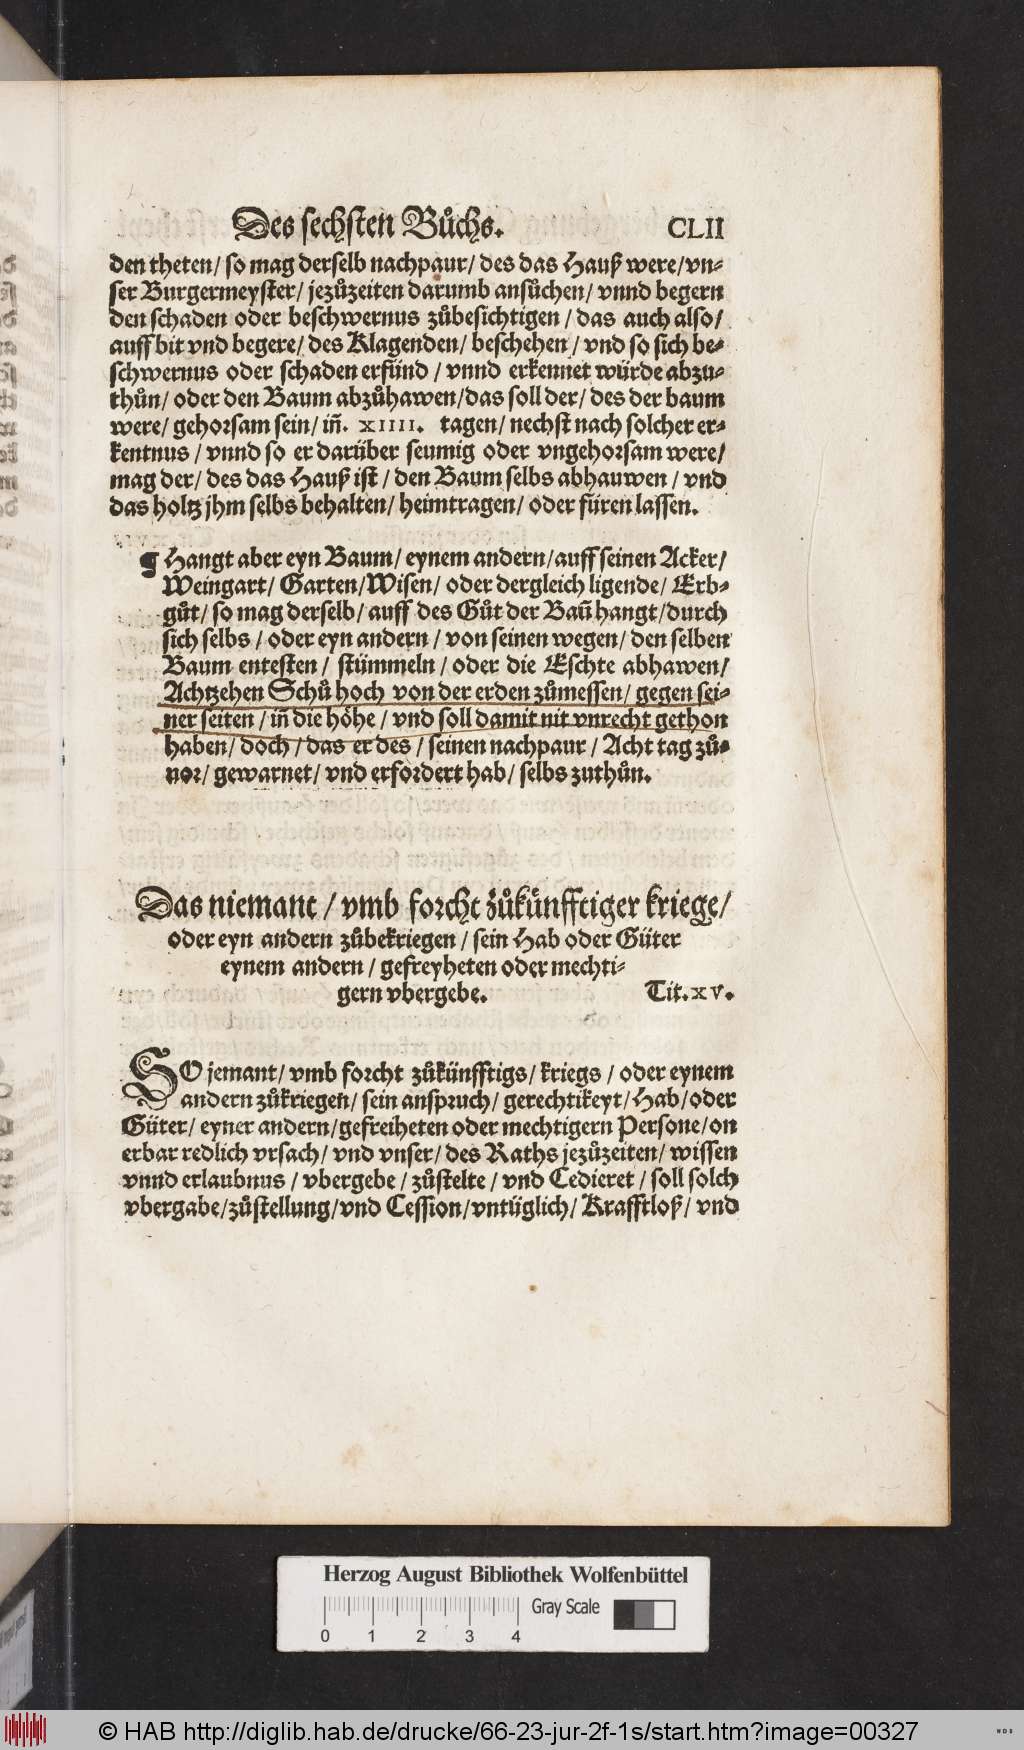 Des sechsten Bůchs. CLII
den theten/ so mag derselb nachpaur/ des das Hauß were/vn⸗
ser Burgermeyster/ jezůzeiten darumb ansůchen/ vnnd begern
den schaden oder beschwernus zůbesichtigen/ das auch also/
auff bit vnd begere/ des Klagenden/ beschehen/ vnd so sich be⸗
schwernus oder schaden erfünd/ vnnd erkennet würde abzu⸗
thůn/ oder den Baum abzůhawen/das soll der/ des der baum
were/ gehorsam sein/ iñ. XIIII. tagen/ nechst nach solcher er⸗
kentnus/ vnnd so er darüber seumig oder vngehorsam were/
mag der/ des das Hauß ist/ den Baum selbs abhauwen/ vnd
das holtz jhm selbs behalten/ heimtragen/ oder füren lassen.
¶ Hangt aber eyn Baum/ eynem andern/auff seinen Acker/
Weingart/ Garten/Wisen/ oder dergleich ligende/ Erb⸗
gůt/ so mag derselb/ auff des Gůt der Baũ hangt/durch
sich selbs/ oder eyn andern/ von seinen wegen/ den selben
Baum entesten/ stümmeln/ oder die Eschte abhawen/
Achtzehen Schů hoch von der erden zůmessen/ gegen sei⸗
ner seiten/ iñ die höhe/ vnd soll damit nit vnrecht gethon
haben/ doch/ das er des/ seinen nachpaur/ Acht tag zů⸗
uor/ gewarnet/ vnd erfordert hab/ selbs zuthůn.
Das niemant/ vmb forcht zůkünfftiger kriege/
oder eyn andern zůbekriegen/ sein Hab oder Güter
eynem andern/ gefreyheten oder mechti⸗
gern vbergebe. Tit. XV.
SO jemant/ vmb forcht zůkünfftigs/ kriegs/ oder eynem
andern zůkriegen/ sein anspruch/ gerechtikeyt/ Hab/ oder
Güter/ eyner andern/gefreiheten oder mechtigern Persone/on
erbar redlich vrsach/ vnd vnser/ des Raths jezůzeiten/ wissen
vnnd erlaubnus/ vbergebe/ zůstelte/ vnd Cedieret/ soll solch
vbergabe/zůstellung/vnd Cession/vntüglich/ Krafftloß/ vnd
Herzog August Bibliothek Wolfenbüttel
Gray Scale
0 1 2 3 4
© HAB http://diglib.hab.de/drucke/66-23-jur-2f-1s/start.htm?image=00327